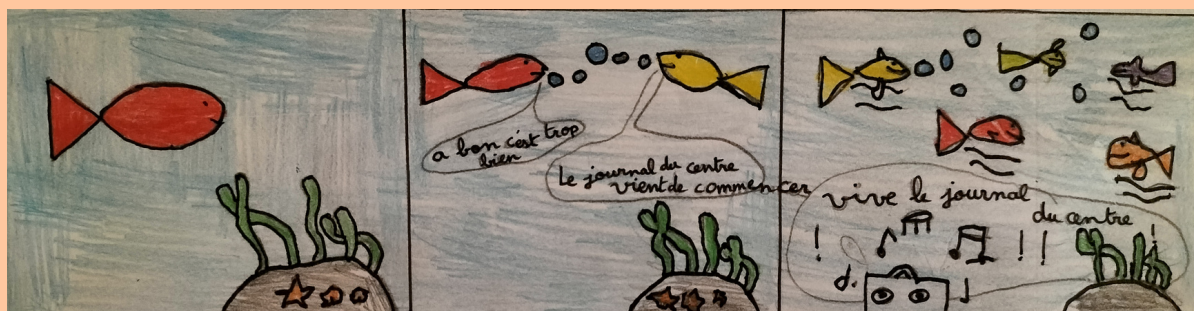 a bon c'est trop
bien
Le journal du centre
vient de commencer
vive le journal
du centre
! ! ! !